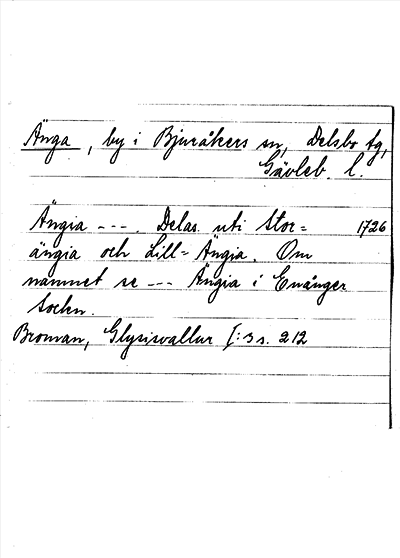 Änga, by i Bjuråkers sn, Delsbo tg,
Gävleb. l.
Ängia ---. Delas uti Stor= 1726
ängia och Lill=Ängia. Om
namnet se --- Ängia i Enånger
socken.
Broman, Glysisvallur I:3 s. 212